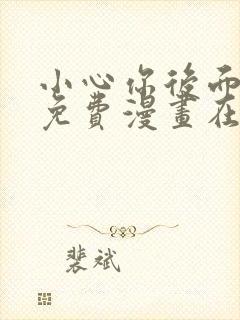 小心你後面
免費漫畫在
裴斌